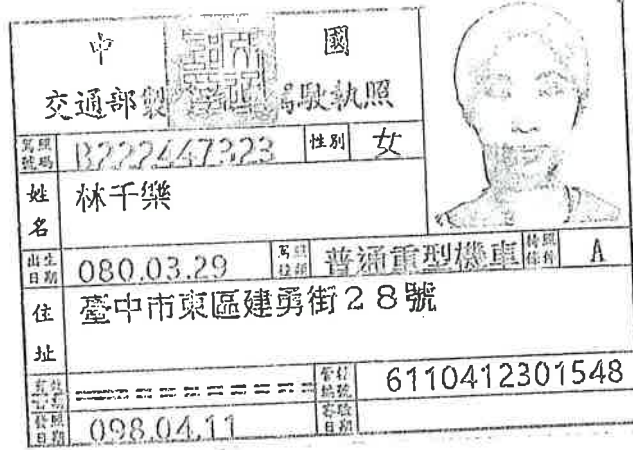 中 國
交通部製 駕駛執照
駕照號碼 B222447323 性別 女
姓名 林千樂
出生日期 080.03.29 駕照種類 普通重型機車 持照條件 A
住址 臺中市東區建勇街28號
管轄編號 6110412301548
發照日期 098.04.11 審驗日期